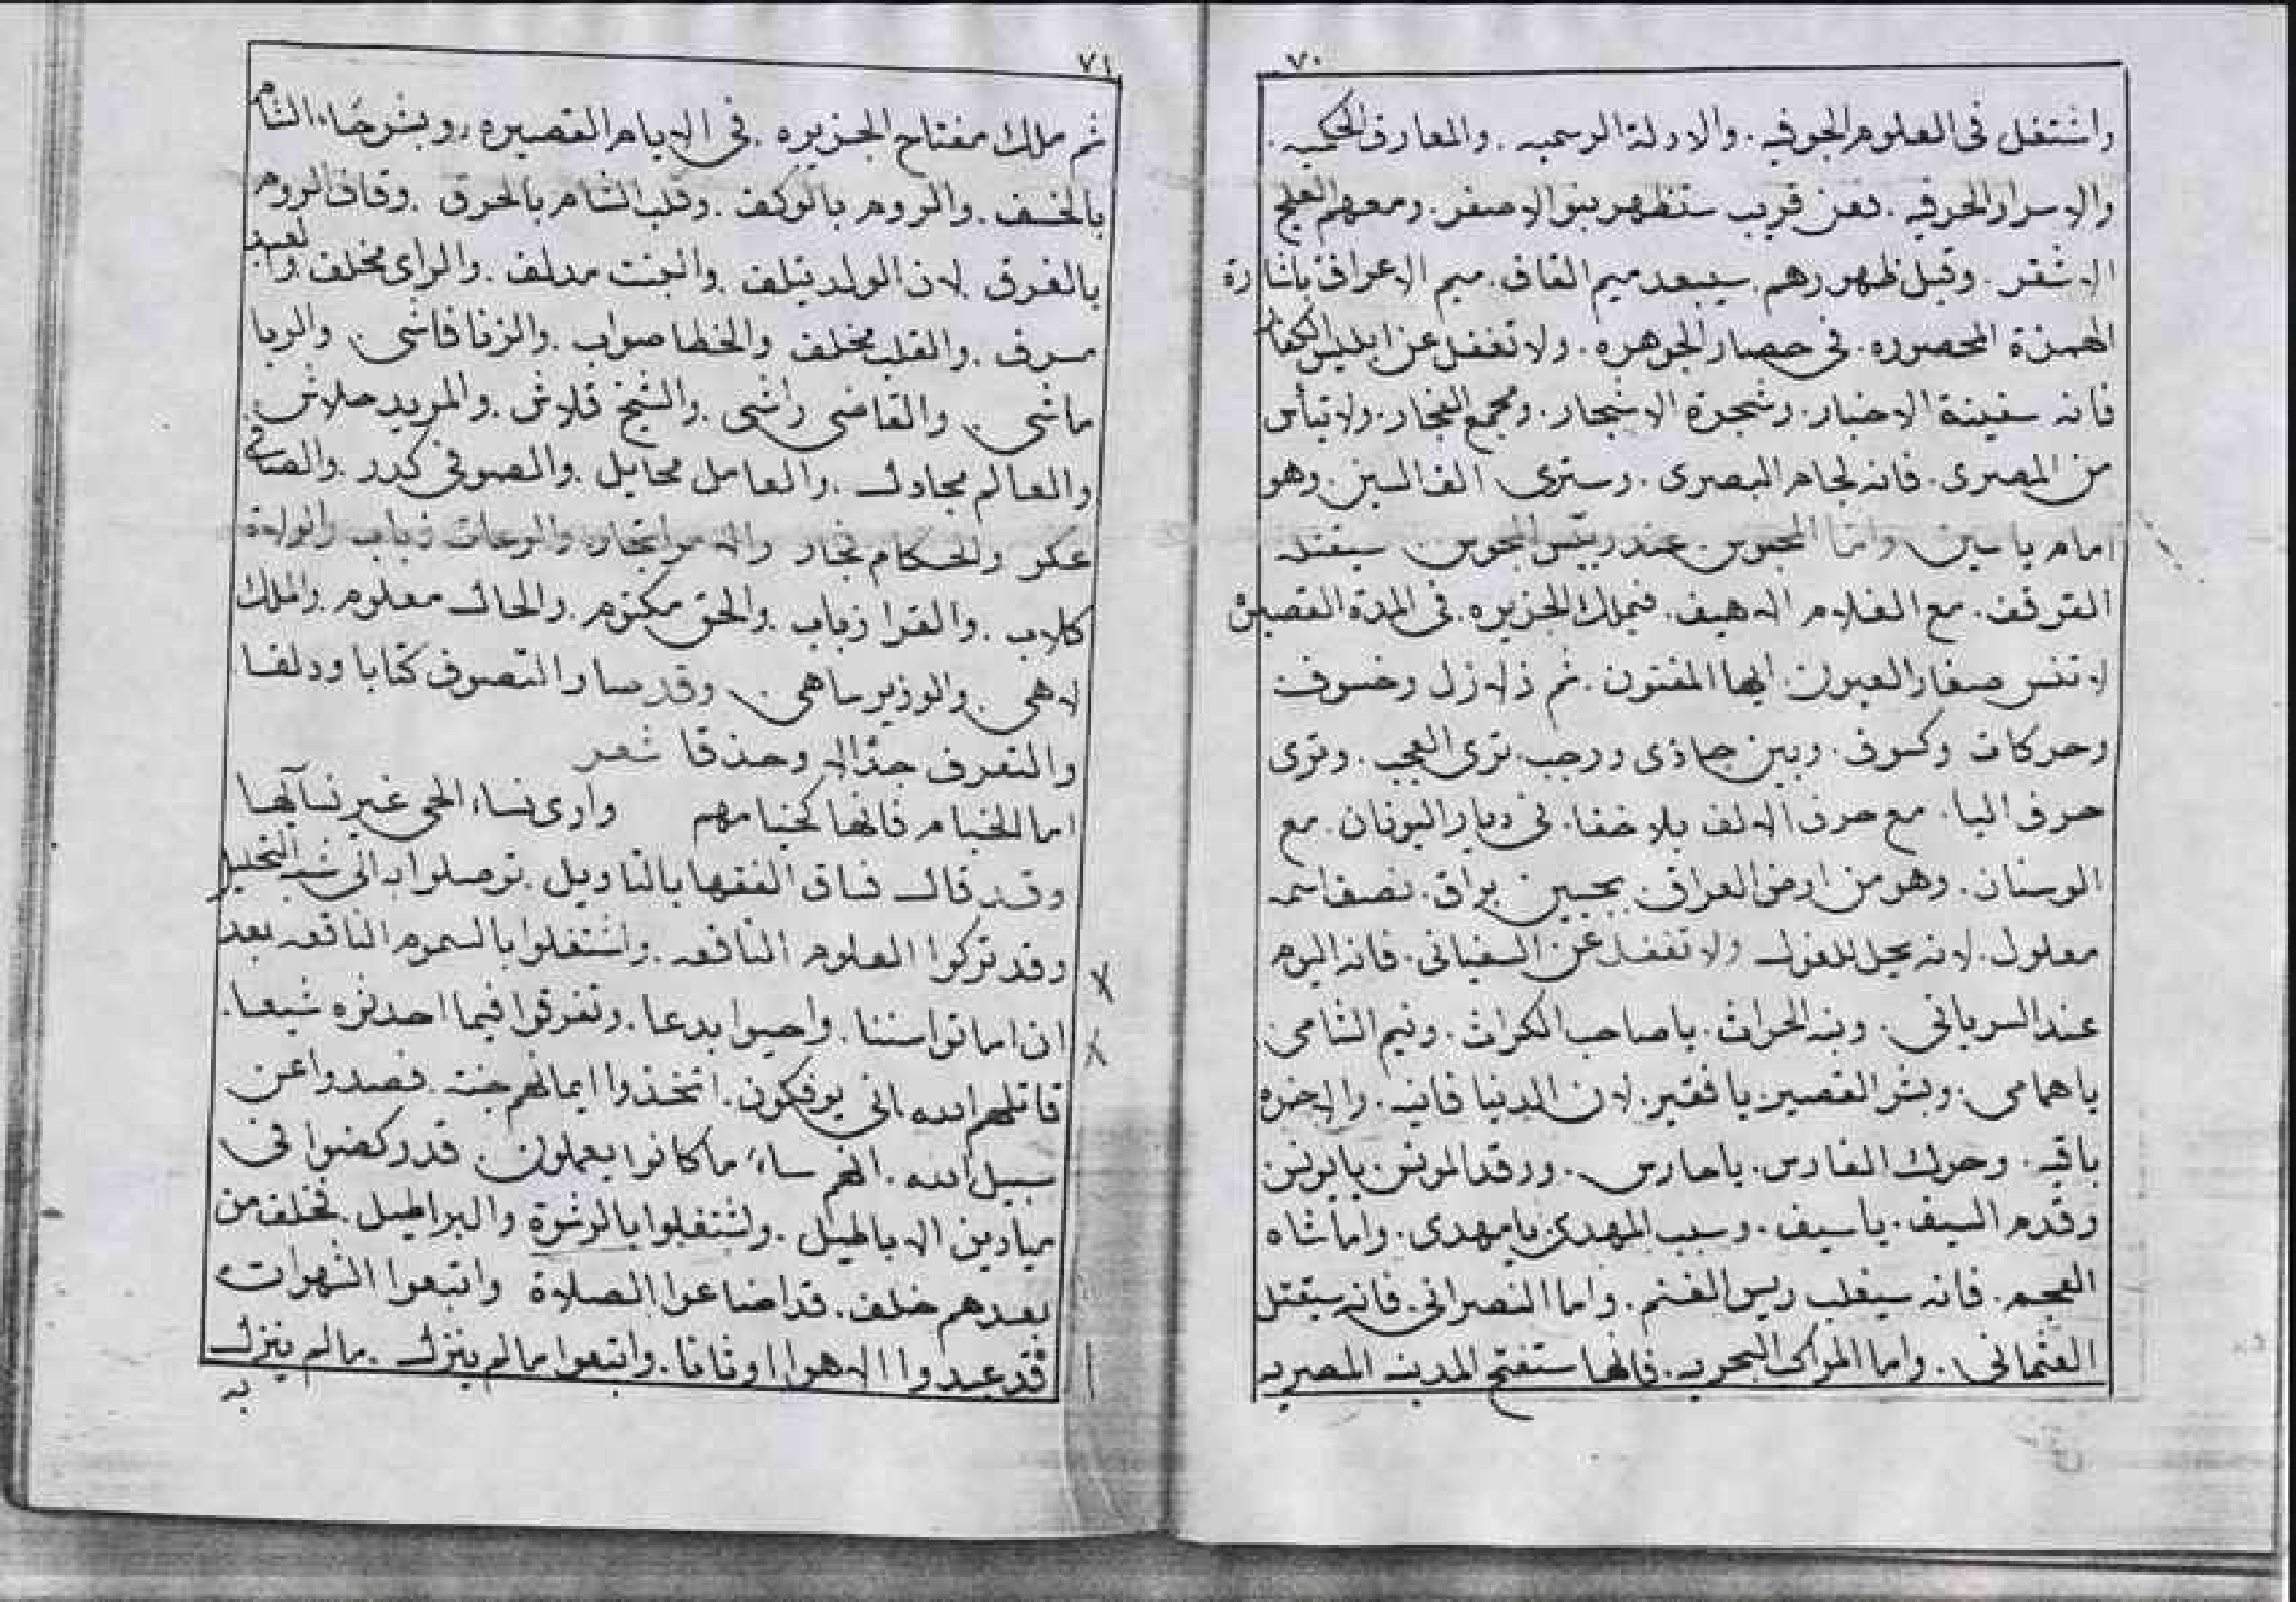 ٧٠
واشتغل فى العلوم الجوفيه . والادلة الرسميه . والمعارف الحكميه .
والاسرار الحرفيه . فعن قريب ستظهر بنو الاصفر . ومعهم العلج
الاشقر . وقبل ظهورهم . سيبعد ميم القاف . ميم الاعراف باشارة
الهمزة المحصوره . فى حصار الجوهره . ولا تغفل عن ابليس
فانه سفينة الاخبار . وشجرة الاشجار . ومجمع الفجار . ولا تيأس
من المصرى . فانه لجام البصرى . وسترى الف السين . وهو
امام ياسين . واما المحبوس . عند رئيس المجوس . سيقتله
القرقف . مع الغلام الاهيف . فيملك الجزيره . فى المدة القصيره
لا تنس صغار العيون . ايها المفتون . ثم زلازل وخسوف
وحركات وكسوف . وبين جماذى ورجب . ترى العجب . وترى
حرف اليا . مع حرف الالف بلا خفا . فى ديار اليونان . مع
الوسنان . وهو من ارض العراق . بجبين براق . نصف اسمه
معلول . لانه يحل للغول ولا تغفل عن السفيانى . فانه اليوم
عند السريانى . ونبه الحراث . يا صاحب الكراث . ونيم الشامى .
يا همامى . وبشر القصير . يا فقير . لان الدنيا فانيه . والاخره
باقيه . وحرك الفارس . يا حارس . ورقد المونس . يا يونس
وقدم السيف . يا سيف . وسبب المهدى . يا مهدى . واما شاه
العجم . فانه سيغلب ريس الغنم . واما النصرانى . فانه سيقتل
العثمانى . واما المراكب البحريه . فانها ستفتح المدينه المصريه
٧١
ثم ملك مفتاح الجزيره . فى الايام القصيره . وبشر حماء الشام
بالخسف . والروم بالوكف . وقلب الشام بالحرق . وقاف الروم
بالغرق . لان الولد تيلف . والبنت مدلف . والراى مخلف . والعبد
مسرف . والقلب مخلف والخطا صواب . والزنا فاشى . والربا
ماشى . والقاضى راشى . والشيخ قلاش . والمريد حلاش .
والعالم مجادل . والعامل محايل . والصوفى كدر . والصافى
عكر والحكام تجار والامرا تجار . والرعات ذياب والولاة
كلاب . والقرا زباب . والحق مكتوم . والحال معلوم . والملك
لاهى . والوزير ساهى . وقد صار التصوف كتابا ودلقا .
والتعرف جدالا وحذقا شعر
اما الخيام فانها كخيامهم وارى نساء الحى غير نسآئها
وقد قال فساق الفقها بالتاويل . توصلوا به الى شبه التحليل
وقد تركوا العلوم النافعه . واشتغلوا بالسموم الناقعه بعد
ان اماتوا سننا . واحيوا بدعا . وتفرقوا فيما احدثوه شيعا .
قاتلهم الله انى يوفكون . اتخذوا ايمانهم جنة . فصدوا عن
سبيل الله . انهم ساء ما كانوا يعملون . قد ركضوا فى
ميادين الاباطيل . واشتغلوا بالرشوة والبراطيل . فخلف من
بعدهم خلف . قد اضاعوا الصلاة واتبعوا الشهوات
قد عبدوا الاهوا اوثانا . واتبعوا ما لم ينزل . ما لم ينزل
به